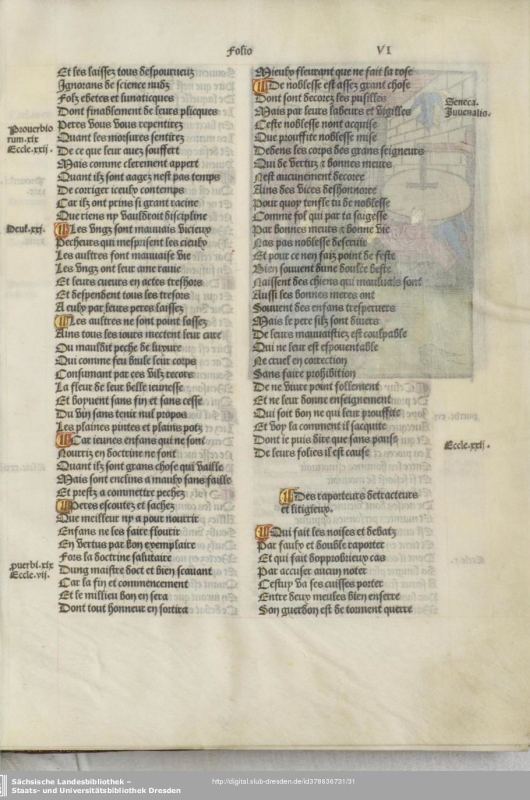 Folio VI
Et les laissez tous despourueuz
Ignorans de science nudz
Folz ebetes et lunatiques
Dont finablement de leurs pliques
Peres vous vous repentirez
Quant les morsures sentirez
De ce que leur auez souffert
Mais comme clerement appert
Quant ilz sont aagez nest pas temps
De corriger iceulx contemps
Car ilz ont prins si grant racine
Que riens ny vauldroit discipline
Les vngz sont mauuais vicieux
Pecheurs qui mesprisent les cieulx
Les aultres font mauuaise vie
Les vngz ont leur ame rauie
Et leurs cueurs en actes treshors
Et despendent tous les tresors
A eulx par leurs peres laissez
Les aultres ne sont point lassez
Ains tous les iours mectent leur cure
Ou mauldit peche de luxure
Qui comme feu brule leur corps
Consumant par ces vilz recors
La fleur de leur belle ieunesse
Et boyuent sans fin et sans cesse
Du vin sans tenir nul propos
Les plaines pintes et plains potz
Car ieunes enfans qui ne sont
Nourriz en doctrine ne font
Quant ilz sont grans chose qui vaille
Mais sont enclins a maulx sans faille
Et prestz a commettre pechez
Peres escoutez et sachez
Que meilleur ny a pour nourrir
Enfans ne les faire flourir
En vertus par bon exemplaire
Fors la doctrine salutaire
Dung maistre doct et bien scauant
Car la fin et commencement
Et le millieu bon en sera
Dont tout honneur en sortira
Prouerbio
rum.xix
Eccle.xxii.
Deut.xxi.
prouerbi.xix
Eccle.vii.
Mieulx fleurant que ne fait la rose
De noblesse est assez grant chose
Dont sont decorez les pusilles
Mais par leurs labeurs et vigilles
Ceste noblesse nont acquise
Que prouffite noblesse mise
Dedens les corps des grans seigneurs
Qui de vertuz et bonnes meurs
Nest aucunement decoree
Ains des vices deshonnoree
Pour quoy tensle tu de noblesse
Comme fol qui par ta saigesse
Par bonnes meurs et bonne vie
Nas pas noblesse desseruie
Et pour ce nen faiz point de feste
Bien souuent dune doulce beste
Naissent des chiens qui mauluais sont
Aussi les bonnes meres ont
Souuent des enfans tresperuers
Mais le pere silz sont diuers
De leurs mauuaistiez est coulpable
Qui ne leur est espouentable
Ne cruel en correction
Sans faire prohibition
De ne viure point follement
Et ne leur donne enseignement
Qui soit bon ne qui leur prouffite
Et voy la comment il sacquite
Dont ie puis dire que sans pause
De leurs folies il est cause
Des raporteurs detracteurs
et litigieux.
Qui fait les noises et debatz
Par faulx et double raporter
Et qui fait dopprobrieux cas
Par accuser aucun noter
Cestuy va ses cuisses porter
Entre deux meules bien enserre
Son guerdon est de tourment querre
Seneca.
Juuenalis.
Eccle.xxii.
Sächsische Landesbibliothek –
Staats- und Universitätsbibliothek Dresden
http://digital.slub-dresden.de/id378636731/31